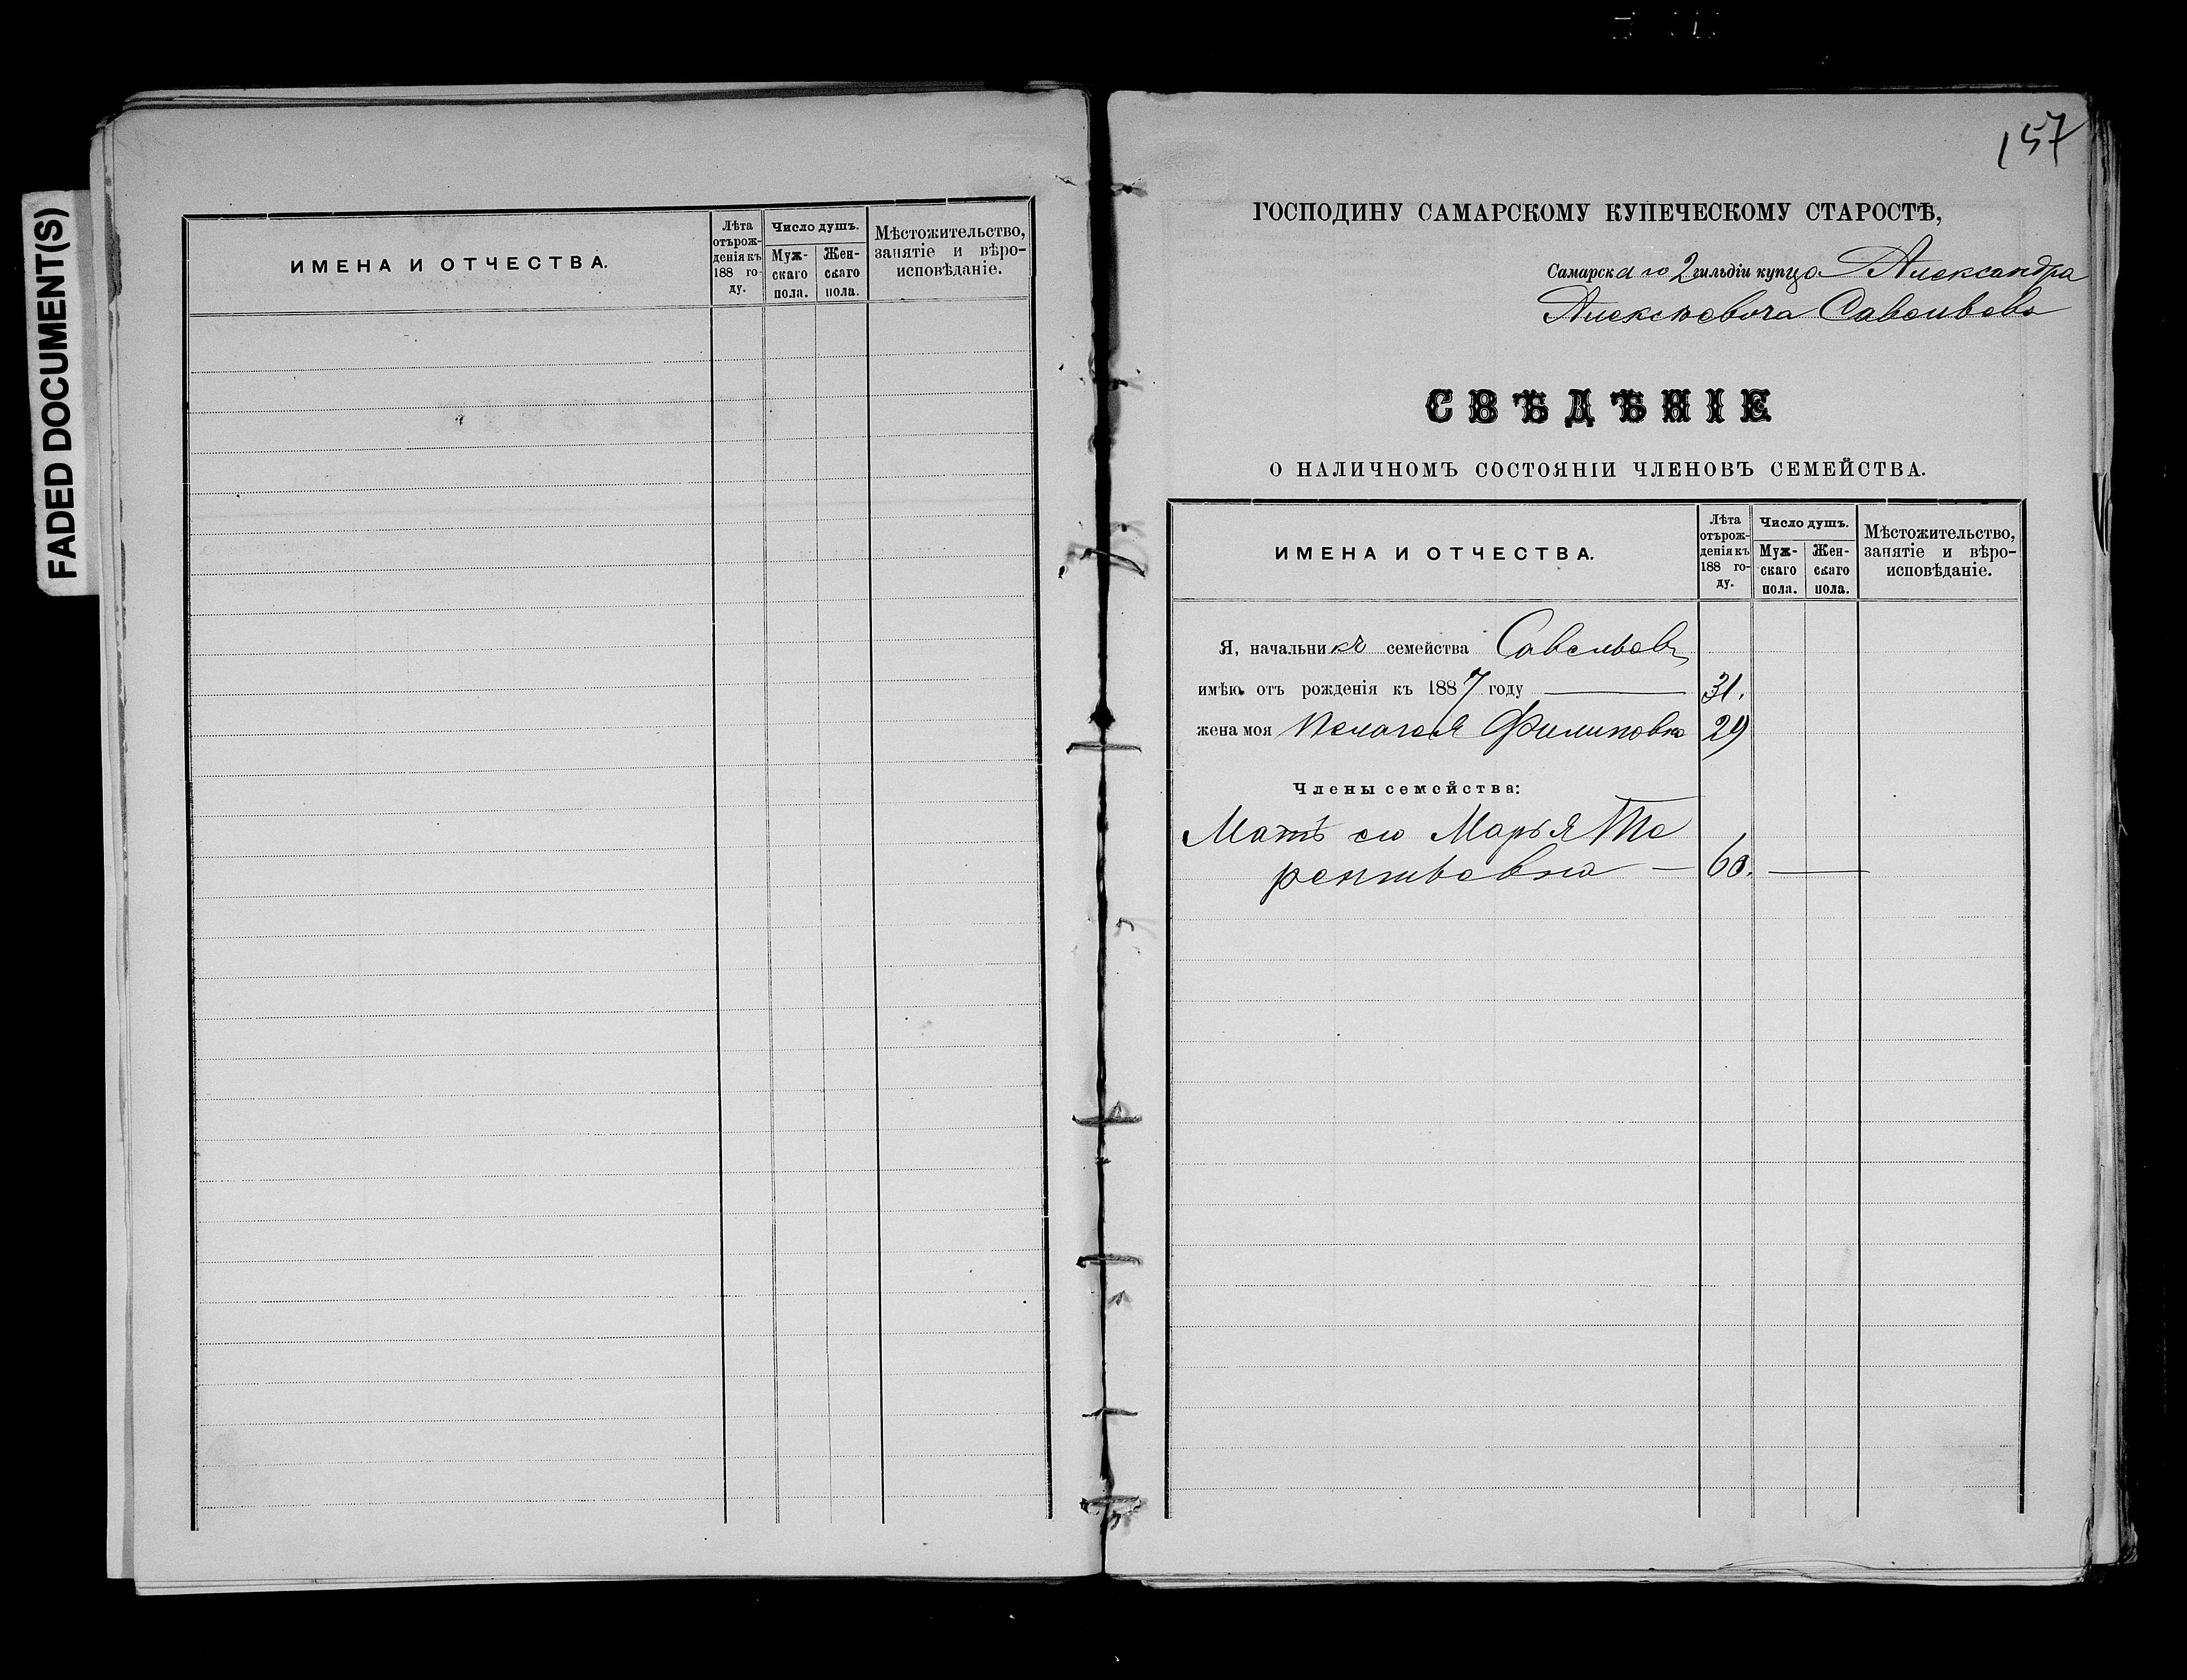 FADED DOCUMENT(S)
ИМЕНА И ОТЧЕСТВА.
Лѣта
отърож-
денія къ
188 го-
ду.
Число душъ.
Муж-
скаго
пола.
Жен-
скаго
пола.
Мѣстожительство,
занятіе и вѣро-
исповѣданіе.
157
ГОСПОДИНУ САМАРСКОМУ КУПЕЧЕСКОМУ СТАРОСТѢ,
Самарскаго 2 гильдіи купца Александра
Алексѣевича
СВѢДѢНІЕ
О НАЛИЧНОМЪ СОСТОЯНІИ ЧЛЕНОВЪ СЕМЕЙСТВА.
ИМЕНА И ОТЧЕСТВА.
Лѣта
отърож-
денія къ
188 го-
ду.
Число душъ.
Муж-
скаго
пола.
Жен-
скаго
пола.
Мѣстожительство,
занятіе и вѣро-
исповѣданіе.
Я, начальникъ семейства
имѣю отъ рожденія къ 1887 году 31.
жена моя Пелагея Филиповна 29
Члены семейства:
Мать его Марья Те
рентьевна — 60.